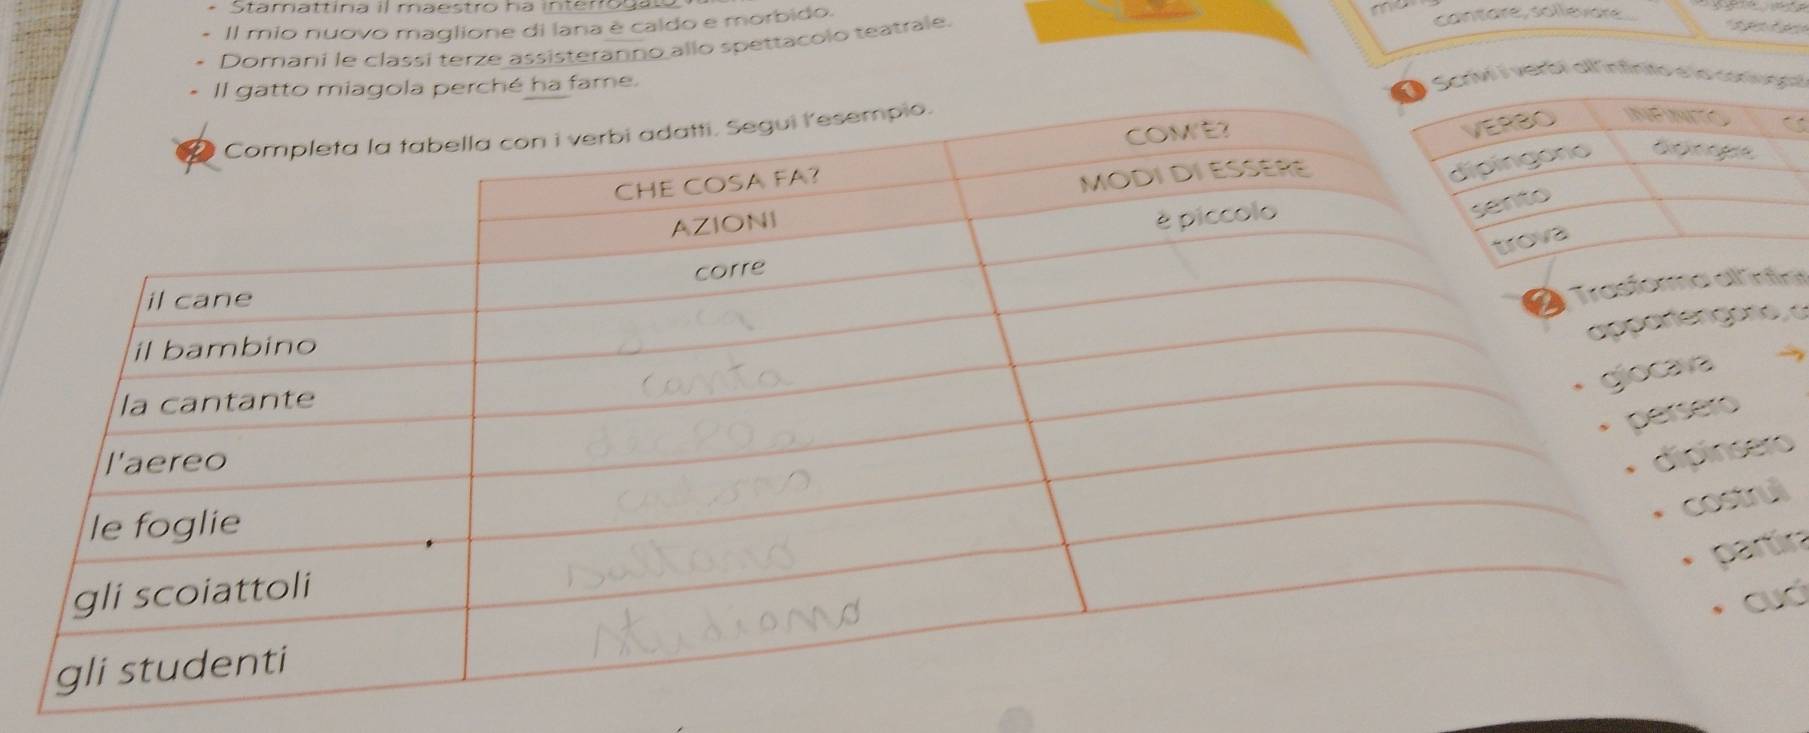 • Stamattina il maestro ha interrogato
• Il mio nuovo maglione di lana è caldo e morbido.
• Domani le classi terze assisteranno allo spettacolo teatrale.
• Il gatto miagola perché ha fame.
2 Completa la tabella con i verbi adatti. Segui l'esempio.
CHE COSA FA? COM'È?
AZIONI MODI DI ESSERE
il cane corre è piccolo
il bambino gioca
la cantante canta
l'aereo decolla
le foglie cadono
gli scoiattoli saltano
gli studenti studiano
cantare, sollevare
1 Scrivi i verbi all'infinito e la coniugaz
VERBO INFINITO CO
dipingono dipingere
sento
trova
2 Trasforma all'infinit
appartengono, c
• giocava →
• persero
• dipinsero
• costruì
• partira
• cuci